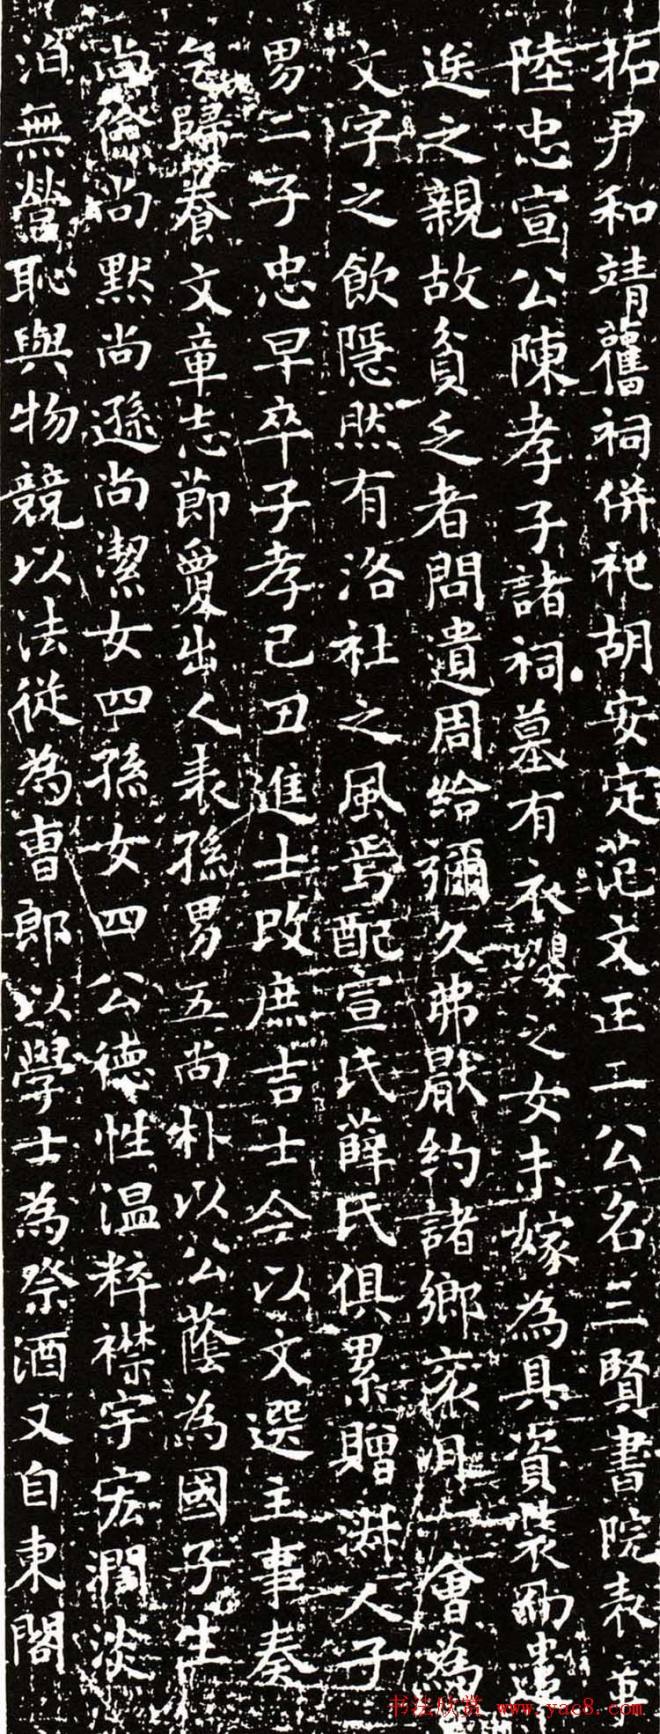 拓尹和靖舊祠併祀胡安定范文正二公名三賢書院表
陸忠宣公陳孝子諸祠墓有衣嬰之女未嫁為具資裝而遣
逑之親故貧乏者問遺周給彌久弗厭約諸鄉袞月一會為
文字之飲隱然有洛社之風焉配宣氏薛氏俱累贈淑人子
男二子忠早卒子孝己丑進士改庶吉士今以文選主事奏
乞歸養文章志節夐出人表孫男五尚朴以公蔭為國子生
尚儉尚默尚遜尚潔女四孫女四公德性溫粹襟宇宏濶淡
泊無營恥與物競以法從為曹郎以學士為祭酒又自東閣
书法欣赏 www.yac8.com